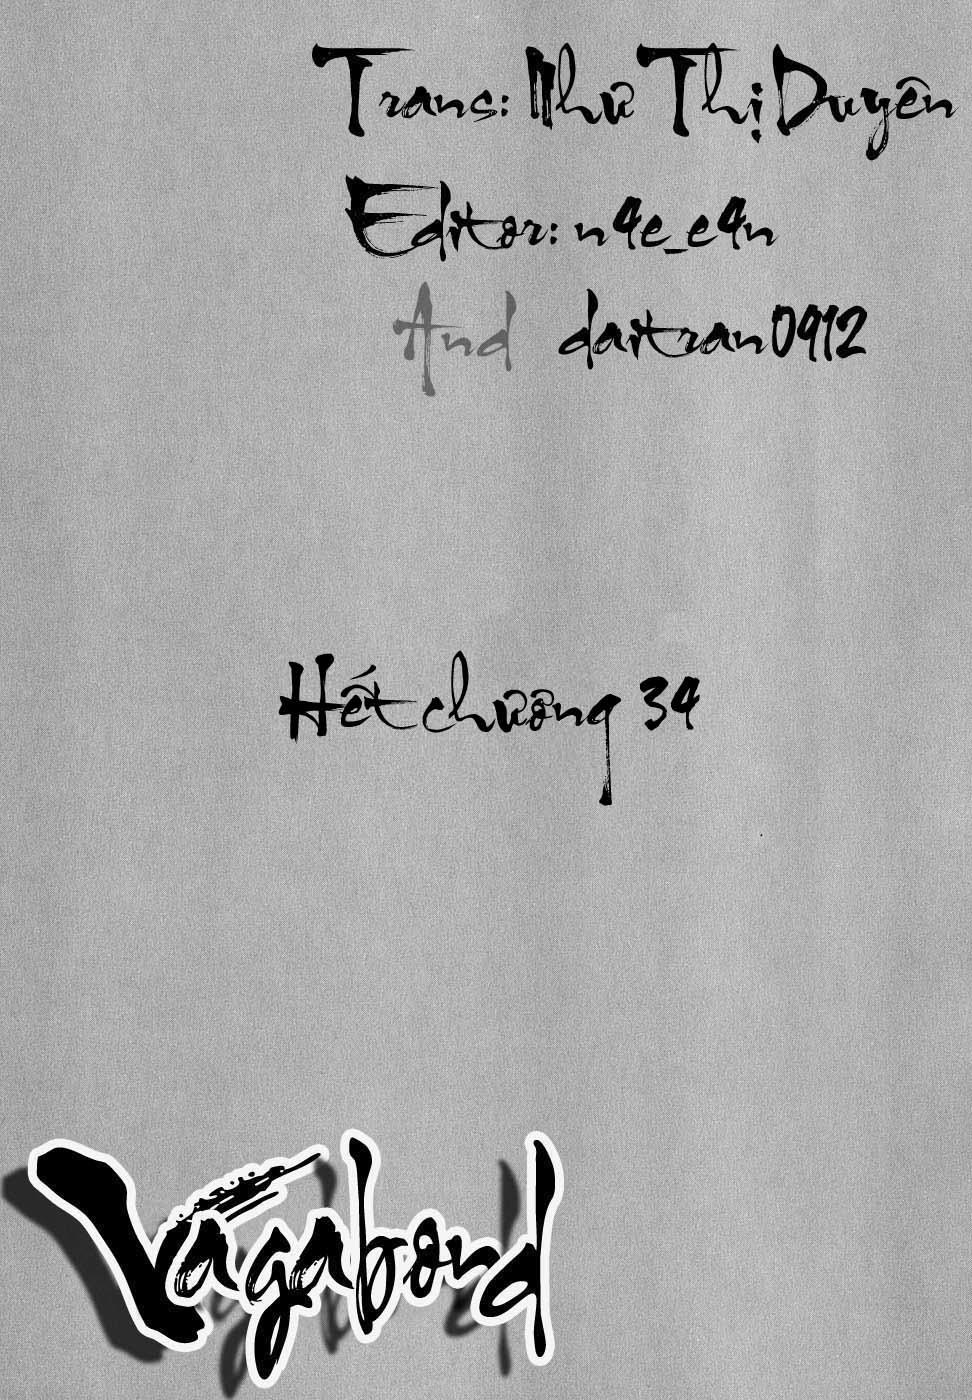 Trans: Như Thị Duyên
Editor: n4e_e4n
And daitran0912
Hết chương 34
Vagabond